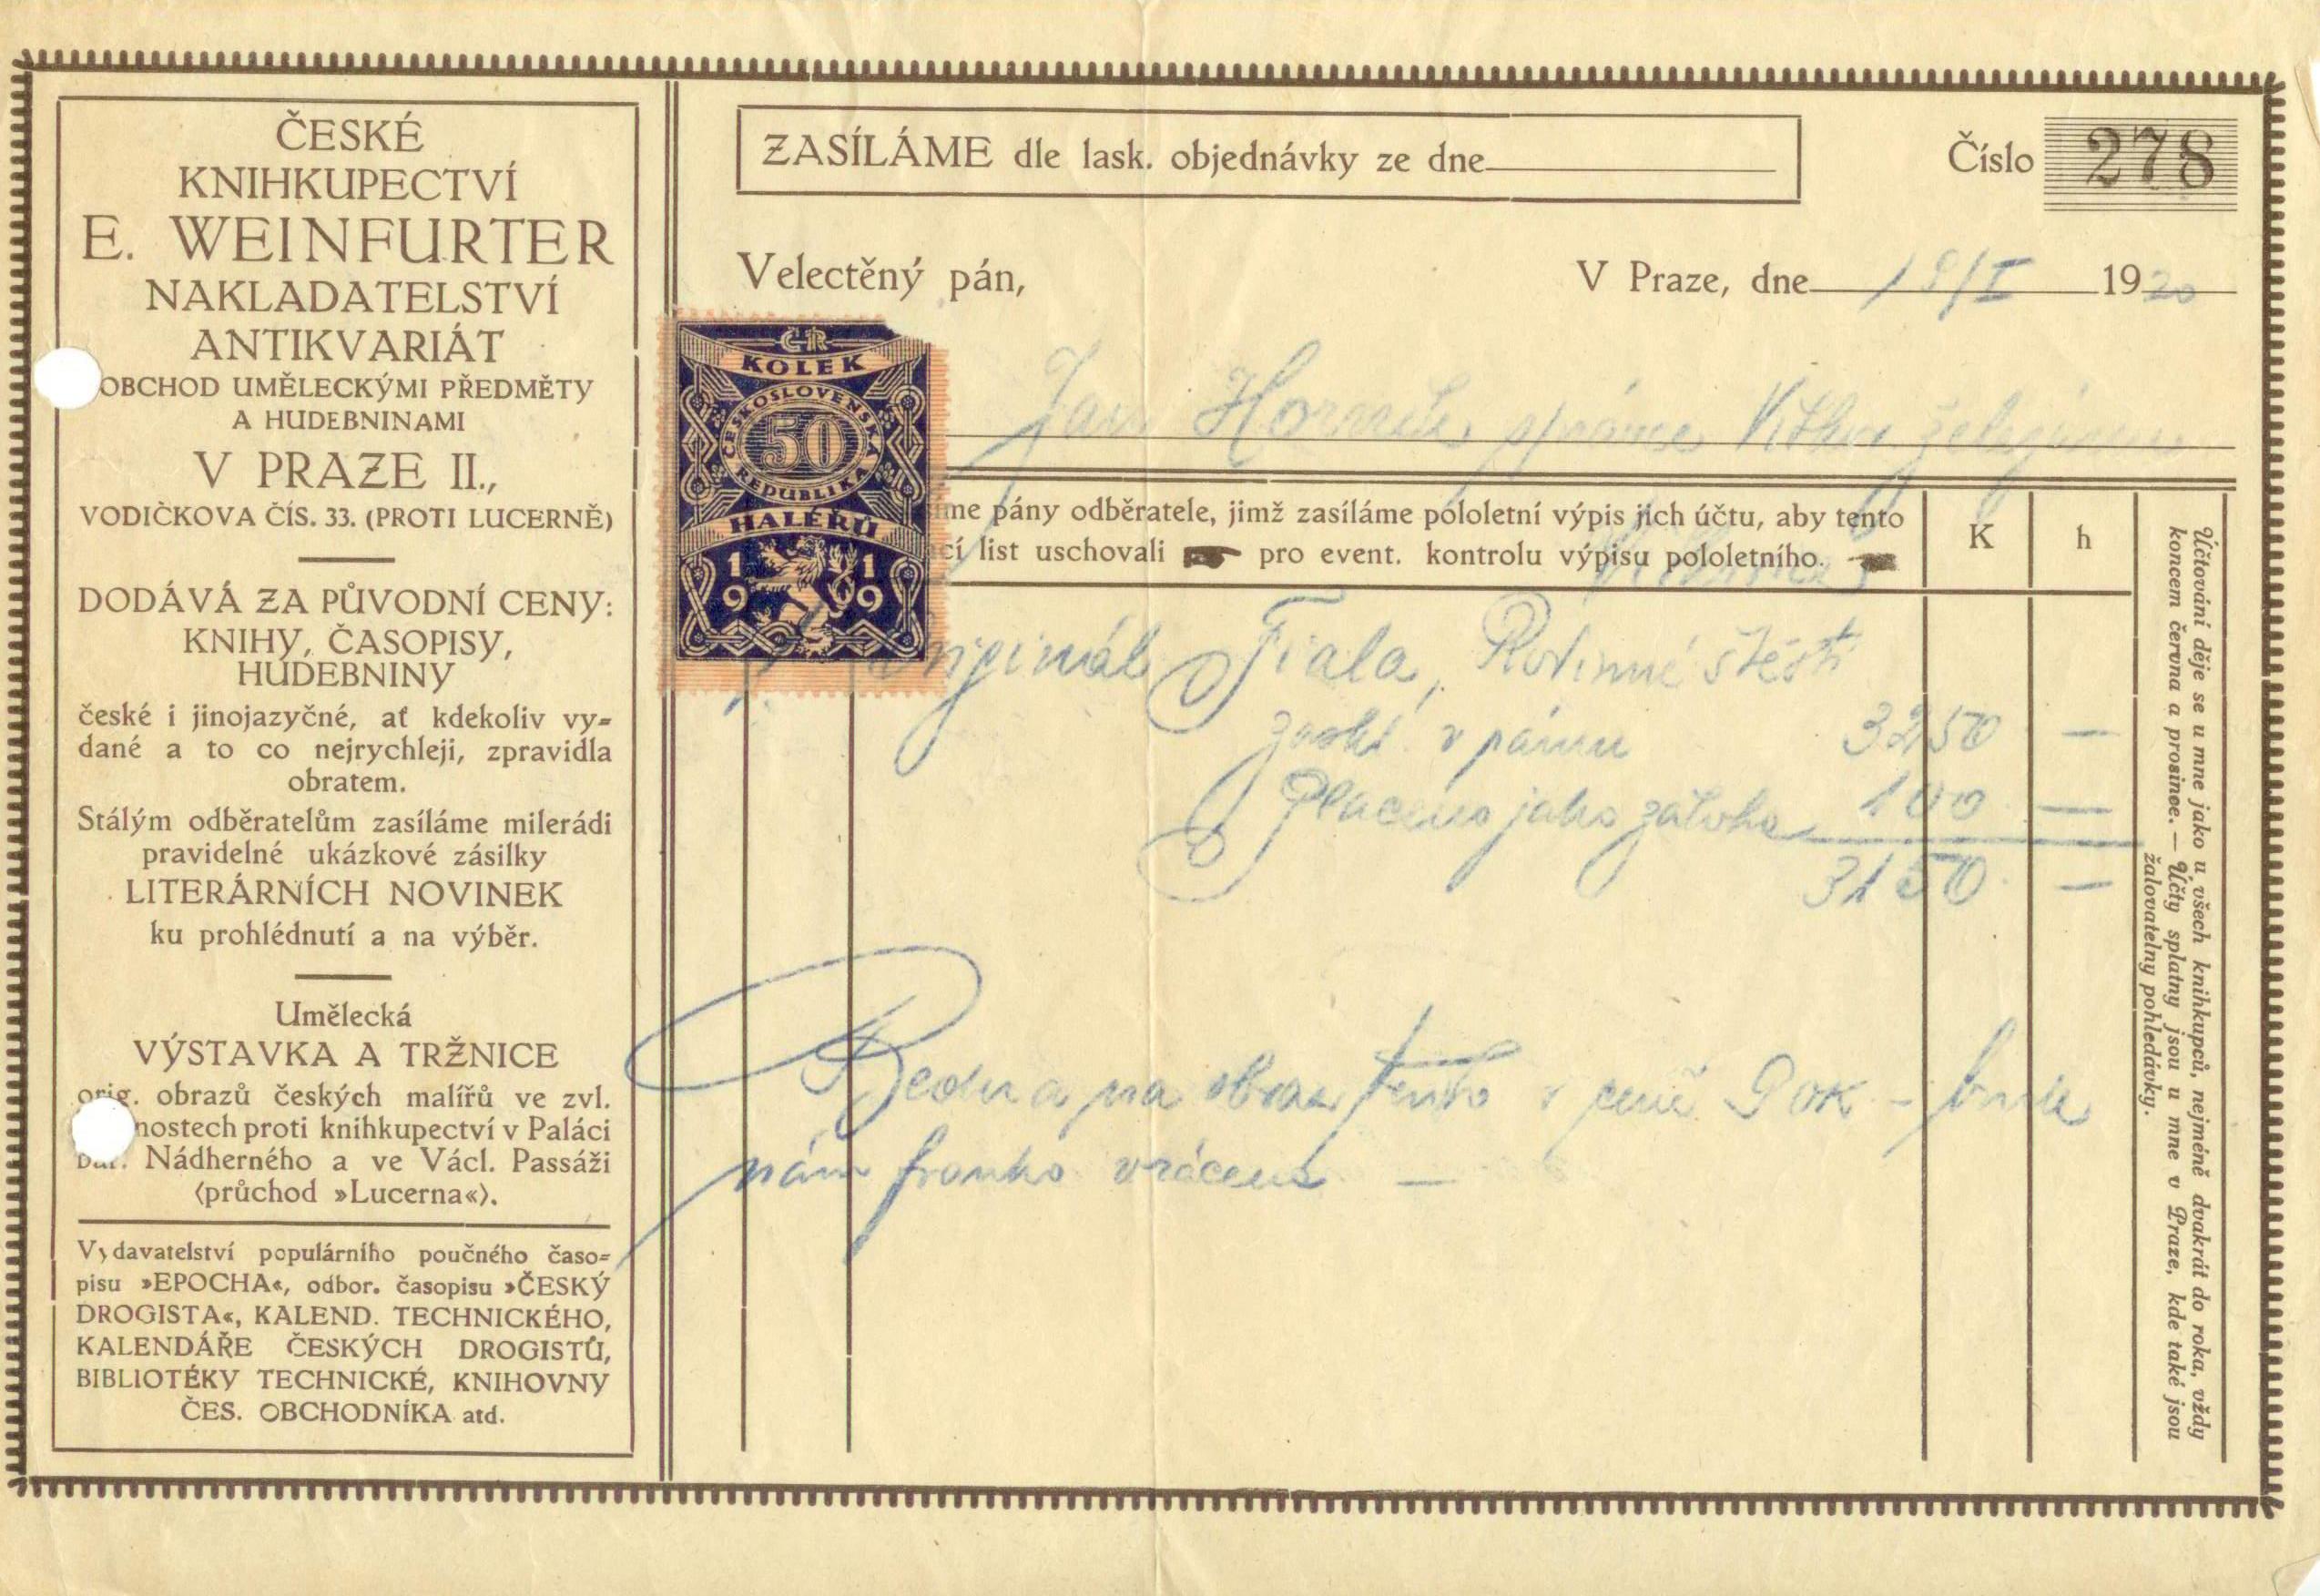 ČESKÉ
KNIHKUPECTVÍ
E. WEINFURTER
NAKLADATELSTVÍ
ANTIKVARIÁT
OBCHOD UMĚLECKÝMI PŘEDMĚTY
A HUDEBNINAMI
V PRAZE II.,
VODIČKOVA ČÍS. 33. (PROTI LUCERNĚ)
DODÁVÁ ZA PŮVODNÍ CENY:
KNIHY, ČASOPISY,
HUDEBNINY
české i jinojazyčné, ať kdekoliv vy=
dané a to co nejrychleji, zpravidla
obratem.
Stálým odběratelům zasíláme milerádi
pravidelné ukázkové zásilky
LITERÁRNÍCH NOVINEK
ku prohlédnutí a na výběr.
Umělecká
VÝSTAVKA A TRŽNICE
orig. obrazů českých malířů ve zvl.
nostech proti knihkupectví v Paláci
bar. Nádherného a ve Václ. Passáži
(průchod »Lucerna«).
Vydavatelství populárního poučného časo=
pisu »EPOCHA«, odbor. časopisu »ČESKÝ
DROGISTA«, KALEND. TECHNICKÉHO,
KALENDÁŘE ČESKÝCH DROGISTŮ,
BIBLIOTÉKY TECHNICKÉ, KNIHOVNY
ČES. OBCHODNÍKA atd.
ZASÍLÁME dle lask. objednávky ze dne
Číslo 278
Velectěný pán,
V Praze, dne 19/I 1920
ČR
KOLEK
ČESKOSLOVENSKÁ
50
REPUBLIKA
HALÉŘŮ
1919
Jan správce
me pány odběratele, jimž zasíláme pololetní výpis jich účtu, aby tento
cí list uschovali pro event. kontrolu výpisu pololetního.
K h
originál Fiala, Rodinné štěstí
v rámu 3250 —
Placeno jako záloha 100 —
3150 —
Bedna na obraz tento v ceně 90K - bude
nám franko vrácena —
Účtování děje se u mne jako u všech knihkupců, nejméně dvakrát do roka, vždy
koncem června a prosince. — Účty splatny jsou u mne v Praze, kde také jsou
žalovatelny pohledávky.